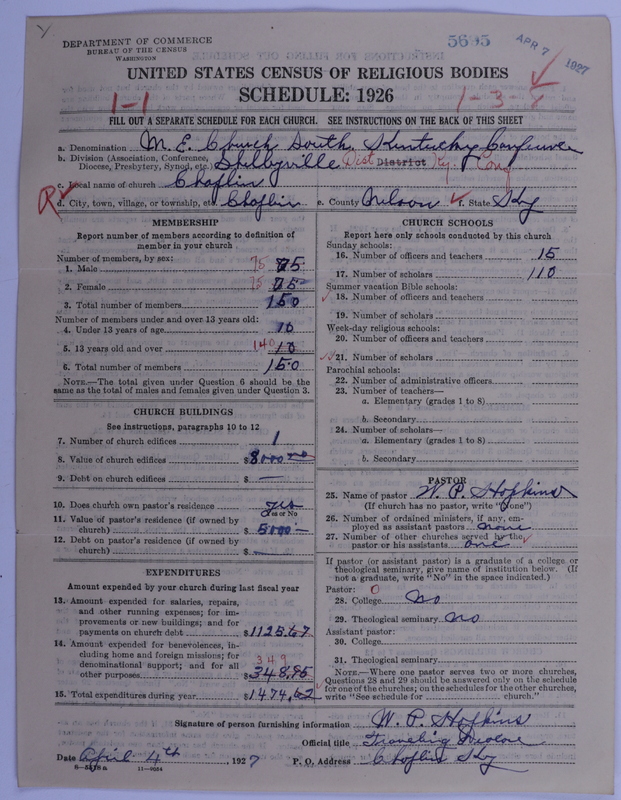 DEPARTMENT OF COMMERCE
BUREAU OF THE CENSUS
WASHINGTON
5695
APR 7 1927
UNITED STATES CENSUS OF RELIGIOUS BODIES
SCHEDULE: 1926
1-1
1-3-
FILL OUT A SEPARATE SCHEDULE FOR EACH CHURCH. SEE INSTRUCTIONS ON THE BACK OF THIS SHEET
a. Denomination M. E. Church South, Kentucky Conference
b. Division (Association, Conference, Diocese, Presbytery, Synod, etc.) Shelbyville Dist District Ky. Conf
c. Local name of church Chaplin
R d. City, town, village, or township, etc. Chaplin e. County Nelson f. State Ky
MEMBERSHIP
Report number of members according to definition of
member in your church
Number of members, by sex:
1. Male 75 75
2. Female 75 75
3. Total number of members 150
Number of members under and over 13 years old:
4. Under 13 years of age 10
5. 13 years old and over 140 10
6. Total number of members 150
NOTE.—The total given under Question 6 should be the
same as the total of males and females given under Question 3.
CHURCH BUILDINGS
See instructions, paragraphs 10 to 12
7. Number of church edifices 1
8. Value of church edifices $8000 00
9. Debt on church edifices $ —
10. Does church own pastor's residence yes
Yes or No
11. Value of pastor's residence (if owned by
church) $5000 —
12. Debt on pastor's residence (if owned by
church) $ —
EXPENDITURES
Amount expended by your church during last fiscal year
13. Amount expended for salaries, repairs,
and other running expenses; for im-
provements or new buildings; and for
payments on church debt $1125.67
14. Amount expended for benevolences, in-
cluding home and foreign missions; for
denominational support; and for all
other purposes 349 $348.95
15. Total expenditures during year $1474.62
CHURCH SCHOOLS
Report here only schools conducted by this church
Sunday schools:
16. Number of officers and teachers 15
17. Number of scholars 110
Summer vacation Bible schools:
18. Number of officers and teachers
19. Number of scholars
Week-day religious schools:
20. Number of officers and teachers
21. Number of scholars
Parochial schools:
22. Number of administrative officers
23. Number of teachers—
a. Elementary (grades 1 to 8)
b. Secondary
24. Number of scholars—
a. Elementary (grades 1 to 8)
b. Secondary
PASTOR
25. Name of pastor W. P. Hopkins
(If church has no pastor, write "None")
26. Number of ordained ministers, if any, em-
ployed as assistant pastors none
27. Number of other churches served by the
pastor or his assistants one
If pastor (or assistant pastor) is a graduate of a college or
theological seminary, give name of institution below. (If
not a graduate, write "No" in the space indicated.)
Pastor: 0
28. College No
29. Theological seminary No
Assistant pastor:
30. College
31. Theological seminary
NOTE.—Where one pastor serves two or more churches,
Questions 28 and 29 should be answered only on the schedule
for one of the churches; on the schedules for the other churches,
write "See schedule for church."
Signature of person furnishing information W. P. Hopkins
Official title Traveling
Date April 4th, 1927 P. O. Address Chaplin Ky
8-5518a 11-9554